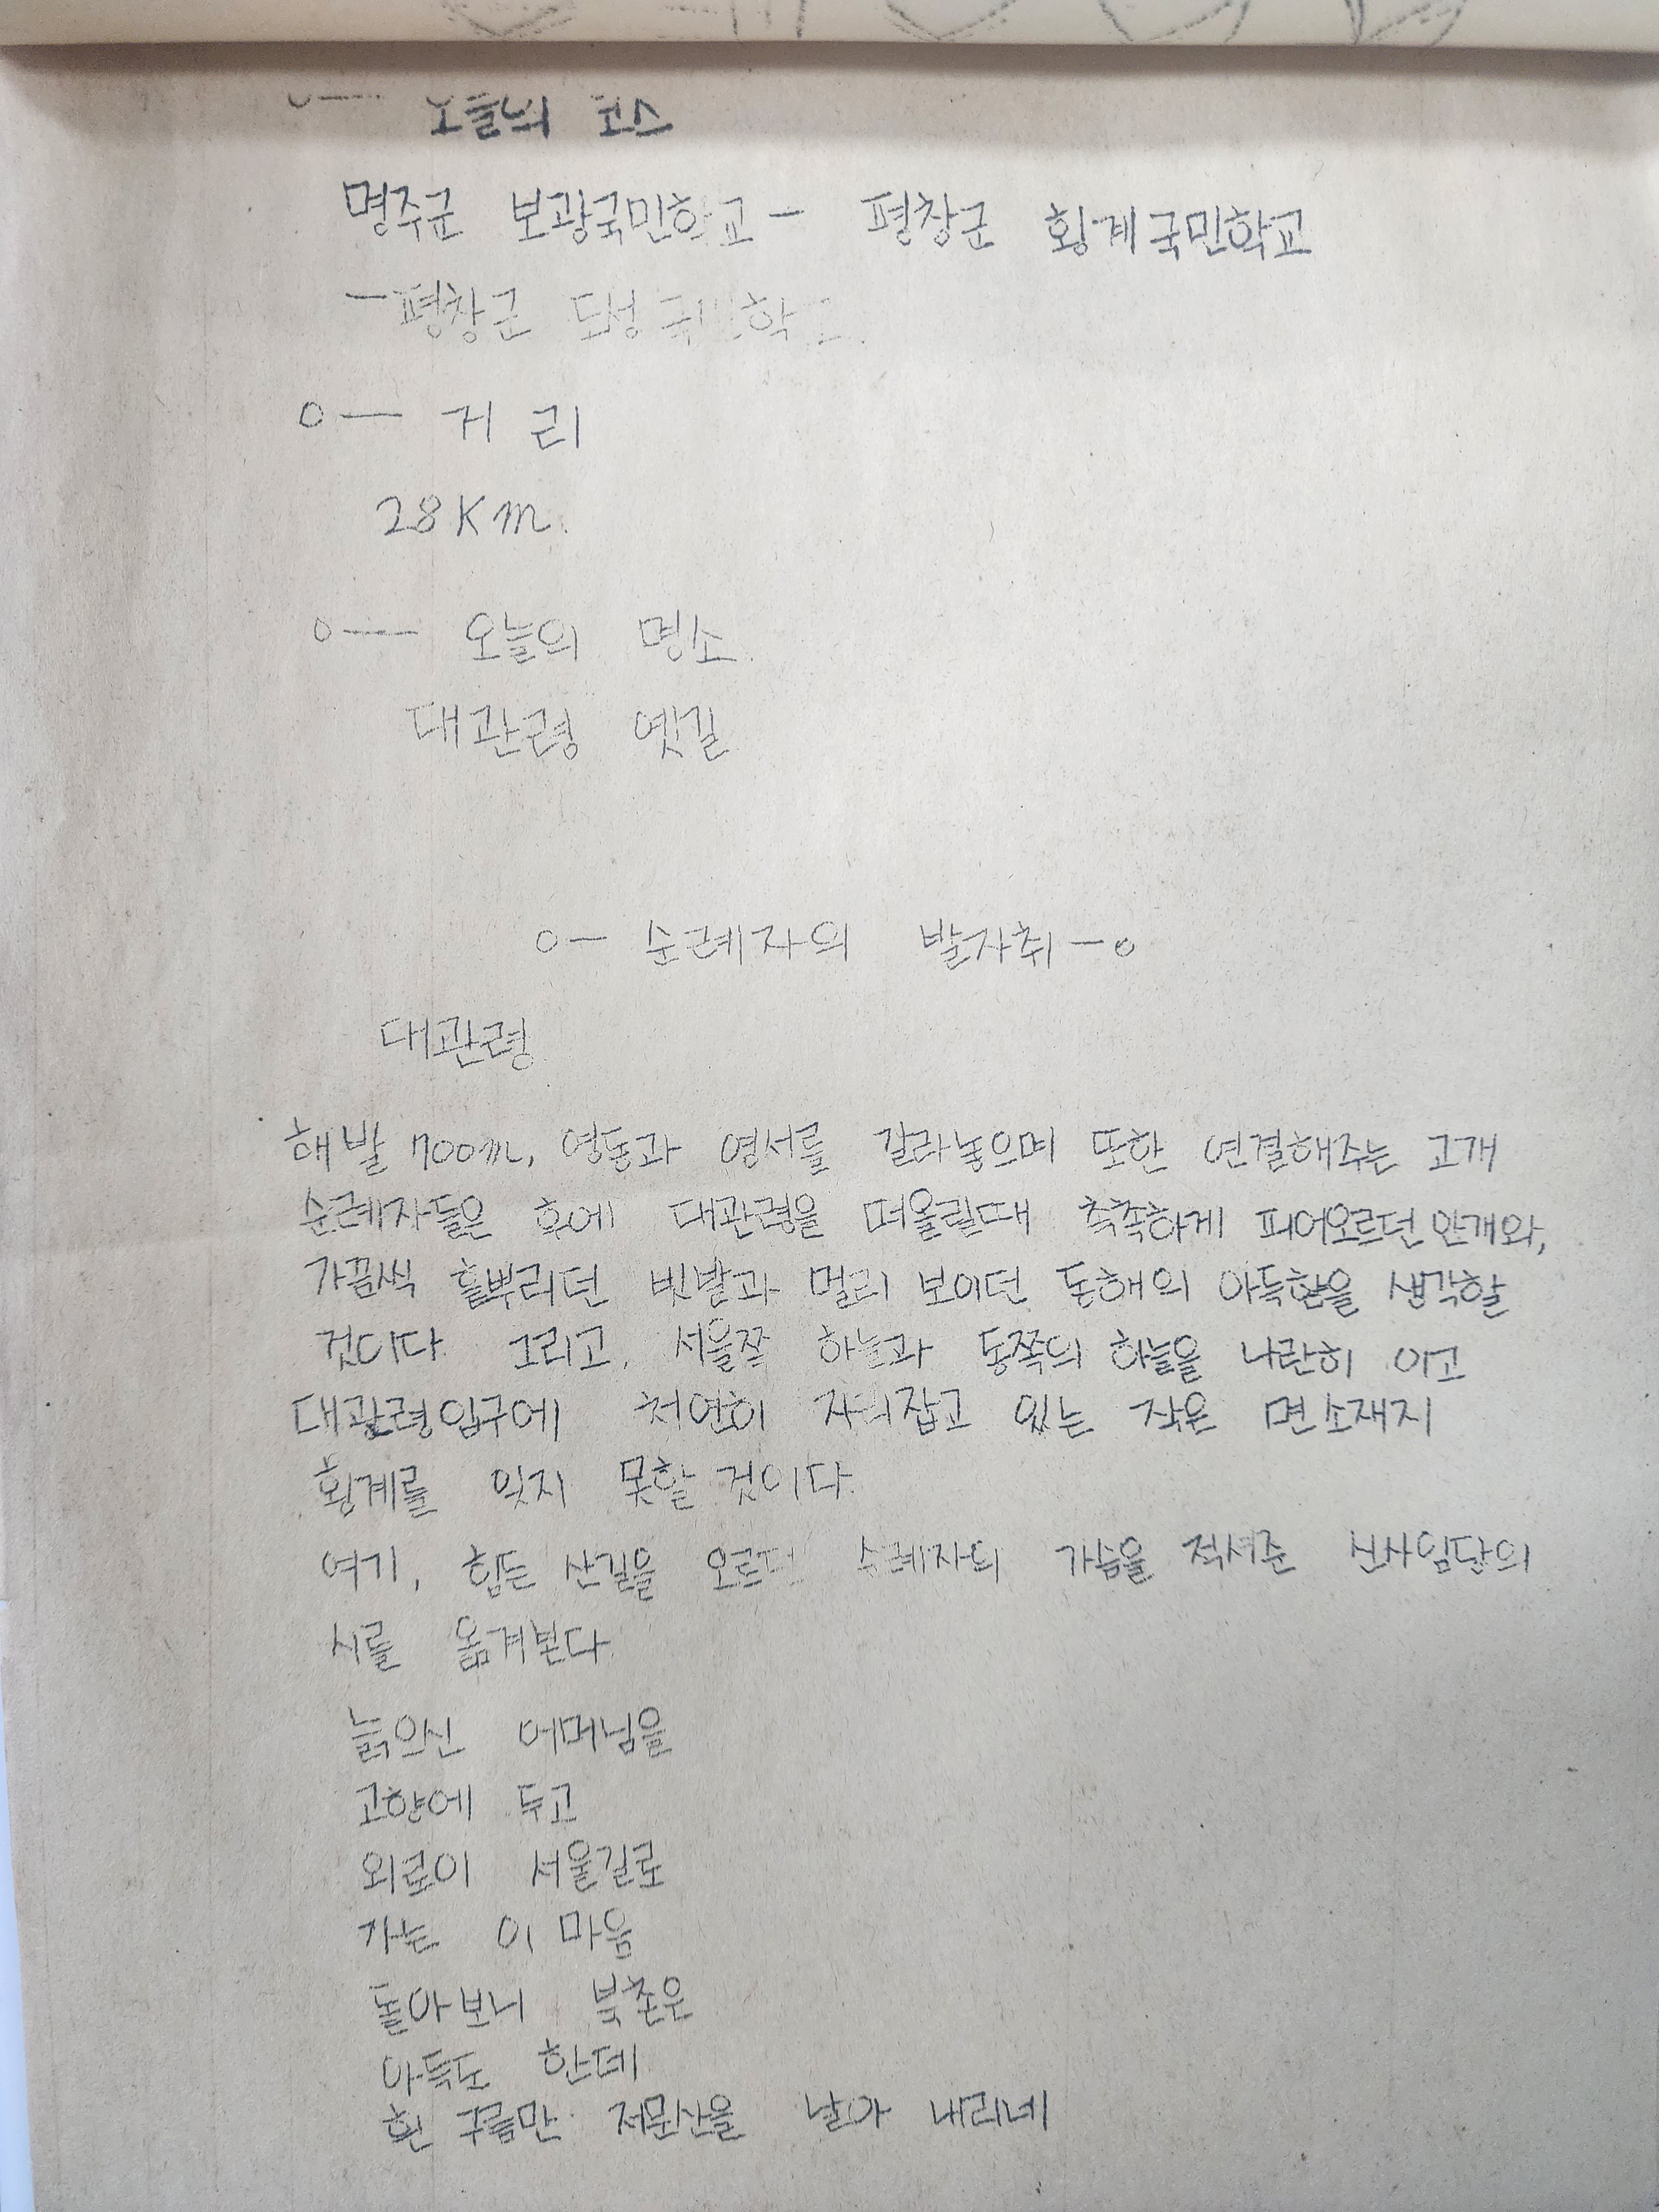 o— 오늘의 코스
명주군 보광국민학교 - 평창군 횡계국민학교
- 평창군 도성국민학교
o— 거리
28Km.
o— 오늘의 명소.
대관령 옛길
o— 순례자의 발자취 —o
대관령
해발 700m, 영동과 영서를 갈라놓으며 또한 연결해주는 고개
순례자들은 후에 대관령을 떠올릴때 축축하게 피어오르던 안개와,
가끔씩 흩뿌리던 빗발과 멀리 보이던 동해의 아득함을 생각할
것이다. 그리고, 서울쪽 하늘과 동쪽의 하늘을 나란히 이고
대관령입구에 처연히 자리잡고 있는 작은 면소재지
횡계를 잊지 못할 것이다.
여기, 힘든 산길을 오르던 순례자의 가슴을 적셔준 신사임당의
시를 옮겨본다.
늙으신 어머님을
고향에 두고
외로이 서울길로
가는 이 마음
돌아보니 북촌은
아득도 한데
흰 구름만 저문산을 날아 내리네